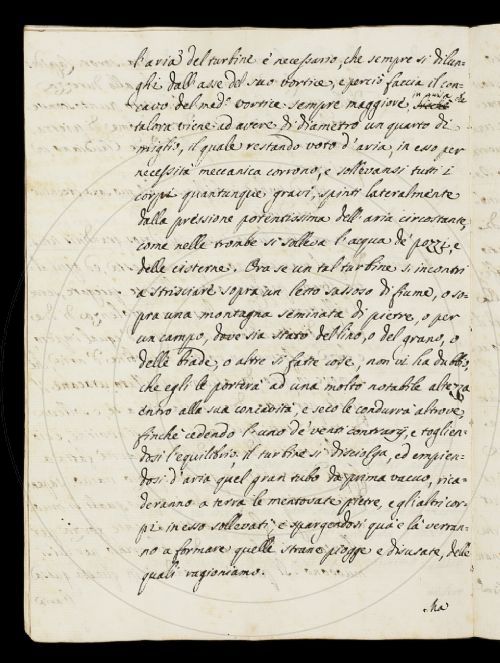 l'aria del turbine è necessario, che sempre si dilun-
ghi dall'asse del suo vortice, e perciò faccia il con-
cavo del med.o vortice sempre maggiore, in guisa che
talora viene ad avere di diametro un quarto di
miglio, il quale restando voto d'aria, in eso per
necessità meccanica corrono, e sollevansi tutti i
corpi quantunque gravi, spinti lateralmente
dalla pressione potentissima dell'aria circostante,
come nelle trombe si solleva l'acqua de' pozzi, e
delle cisterne. Ora se un tal turbine s'incontri
a strisciare sopra un letto sassoso di fiume, o so-
pra una montagna seminata di pietre, o per
un campo, dove sia stato del lino, o del grano, o
delle biade, o altre sì fatte cose, non vi ha dubbio,
che egli le porterà ad una molto notabile altezza
entro alla sua concavità, e seco le condurrà altrove,
finchè cedendo l'uno de' venti contrarij, e toglien-
dosi l'equilibrio, il turbine si disciolga, ed empien-
dosi d'aria quel gran tubo da prima vacuo, rica-
deranno a terra le mentovate pietre, e gli altri cor-
pi in esso sollevati, e spargendosi quà e là verran-
no a formare quelle strane piogge e disusate, delle
quali ragioniamo.
Ma